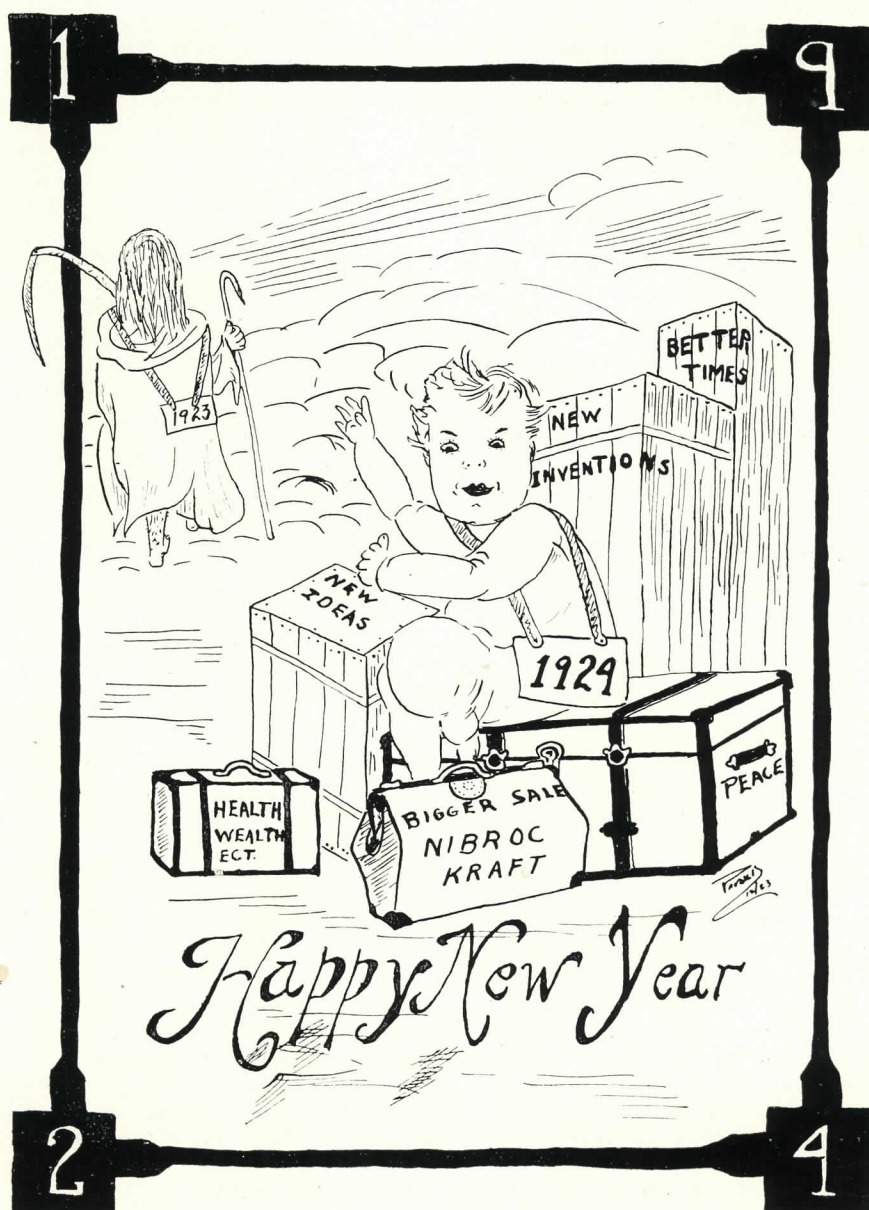 1
9
1923
BETTER
TIMES
NEW
INVENTIONS
NEW
IDEAS
1924
PEACE
HEALTH
WEALTH
ECT.
BIGGER SALE
NIBROC
KRAFT
12/23
Happy New Year
2
4